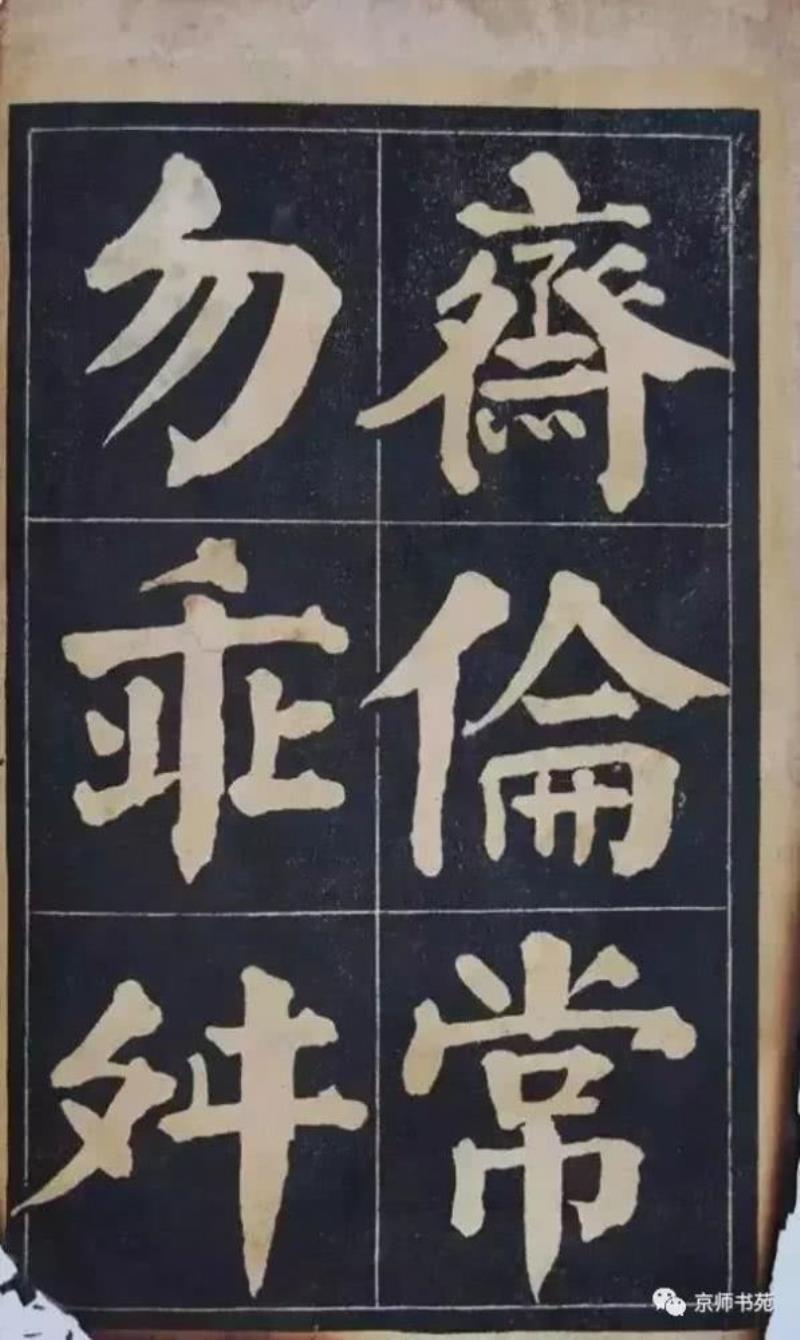 齋倫常
勿乖舛
京师书苑